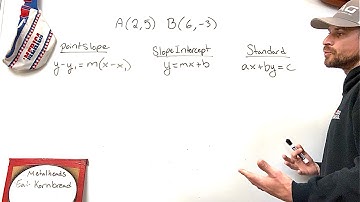 A(2,5) B(6,-3)
Pointslope
y-y₁=m(x-x₁)
Slope Intercept
y=mx+b
Standard
ax+by=c
'MERICA
Metalheads
Eat Kornbread